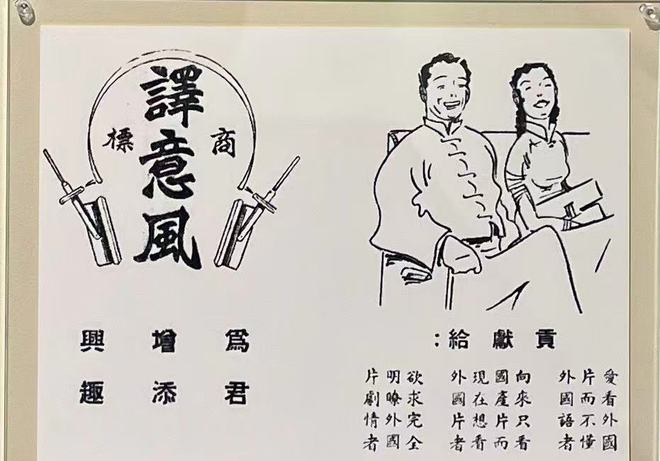 譯意風
商標
爲君
增添
興趣
貢獻給：
愛看外國
片而不懂
外國語者
向來只看
國產片而
現在想看
外國片者
欲求完全
明瞭外國
片劇情者